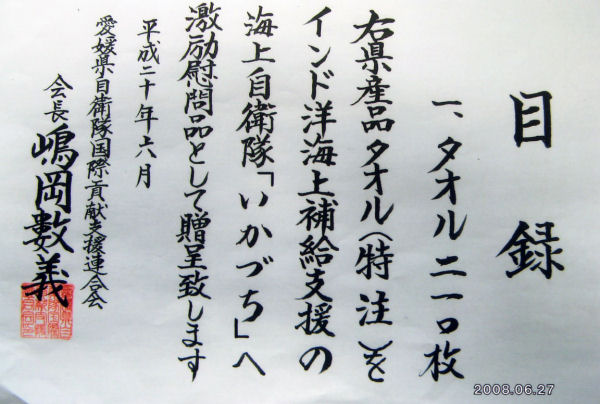 目録
一、タオル二一〇枚
右県産品タオル(特注)を
インド洋海上補給支援の
海上自衛隊「いかづち」へ
激励慰問品として贈呈致します
平成二十年六月
愛媛県自衛隊国際貢献支援連合会
会長 嶋岡数義
2008.06.27